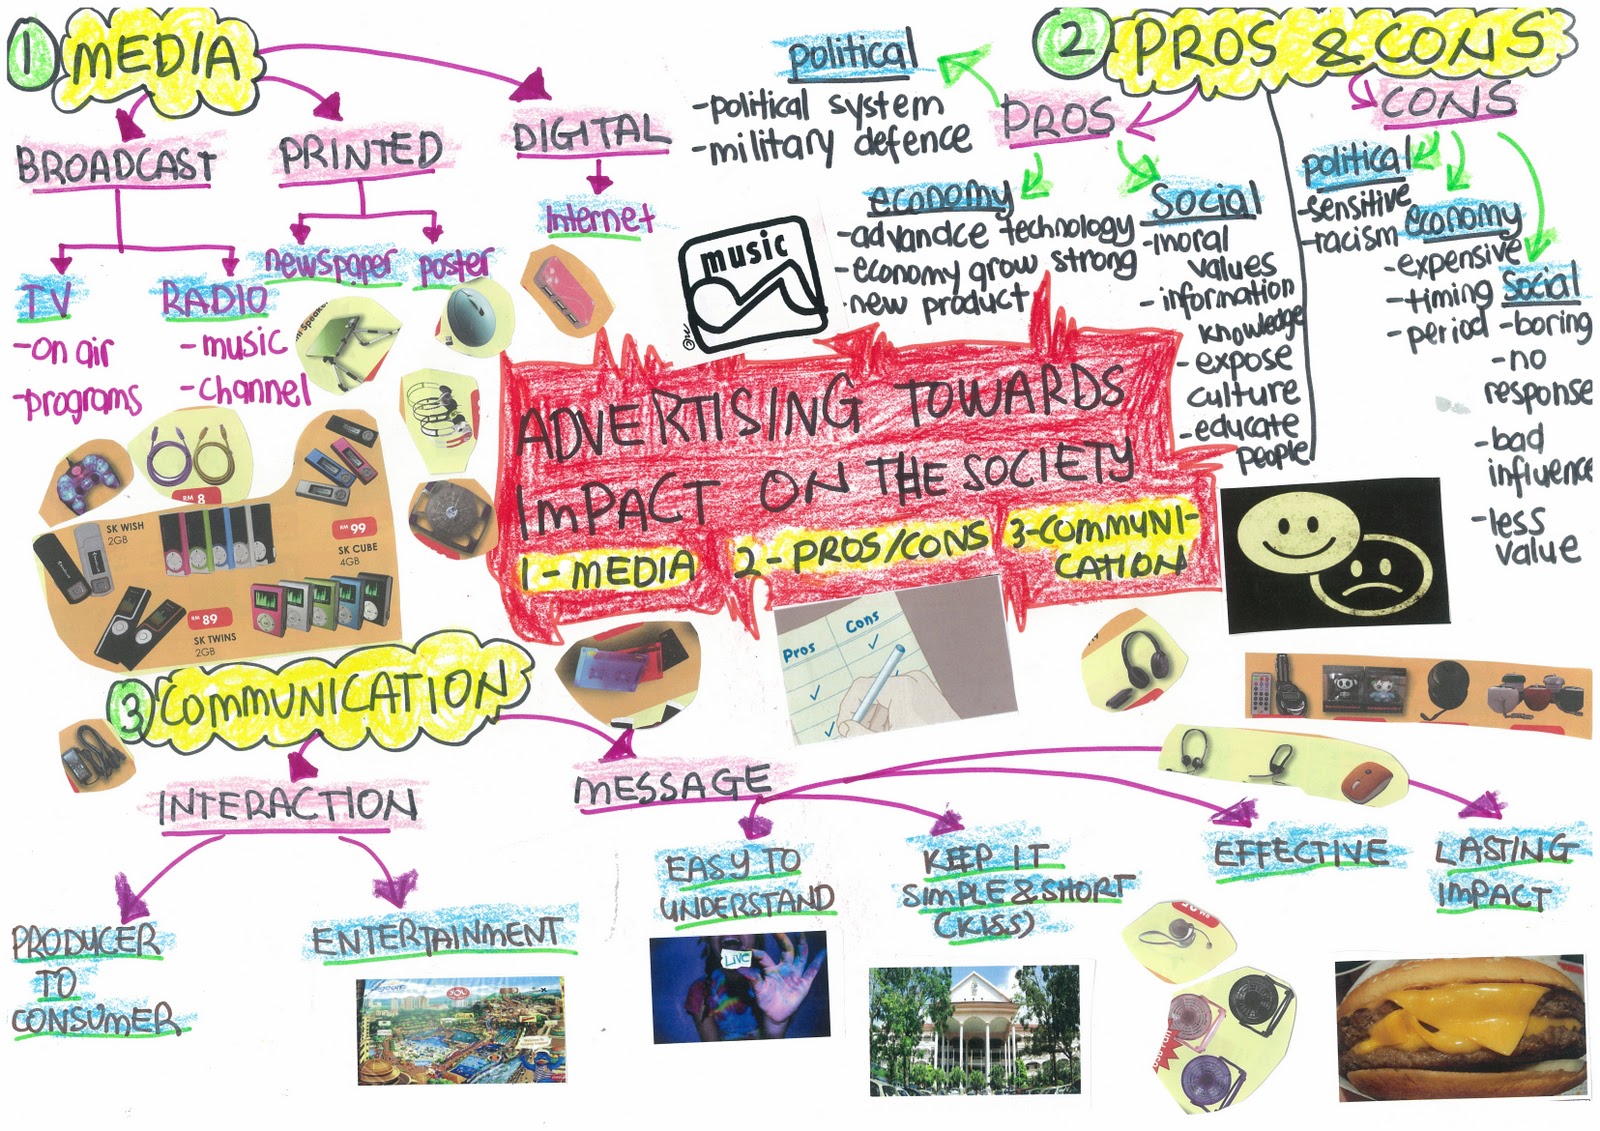 1 MEDIA
BROADCAST
PRINTED
DIGITAL
TV
-on air
-programs
RADIO
-music
-channel
newspaper
poster
Internet
2 PROS & CONS
PROS
political
-political system
-military defence
economy
-advandce technology
-economy grow strong
-new product
Social
-moral
values
-information
knowledge
-expose
culture
-educate
people
CONS
political
-sensitive
-racism
economy
-expensive
-timing
-period
Social
-boring
-no
response
-bad
influence
-less
value
music
ADVERTISING TOWARDS
ImPACT ON THE SOCIETY
1-MEDIA
2-PROS/CONS
3-COMMUNI-
CATION
RM 8
SK WISH
2GB
RM 99
SK CUBE
4GB
RM 89
SK TWINS
2GB
Pros
Cons
3 COMMUNICATION
INTERACTION
PRODUCER
TO
CONSUMER
ENTERTAINMENT
MESSAGE
EASY TO
UNDERSTAND
KEEP IT
SIMPLE & SHORT
(KISS)
EFFECTIVE
LASTING
ImPACT
LIVE